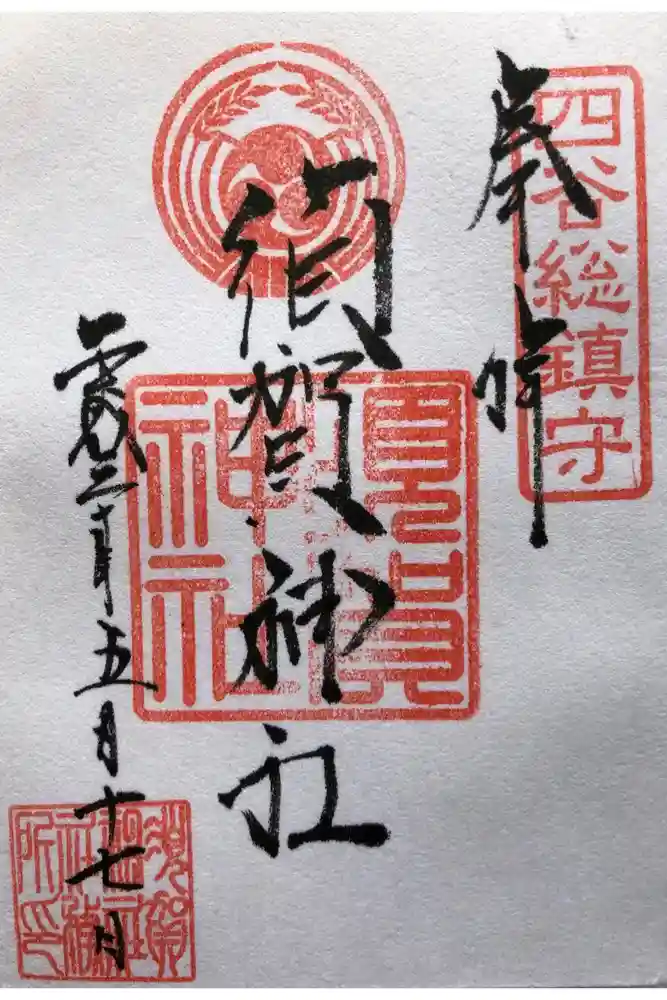 四谷総鎮守
奉拝
須賀神社
須賀神社
平成三十年五月十七日
須賀神社社務所印